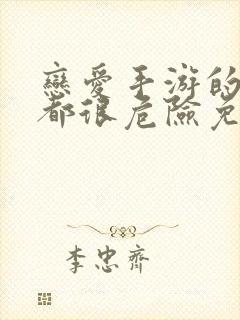 戀愛手游的
都很危險免
李忠齊